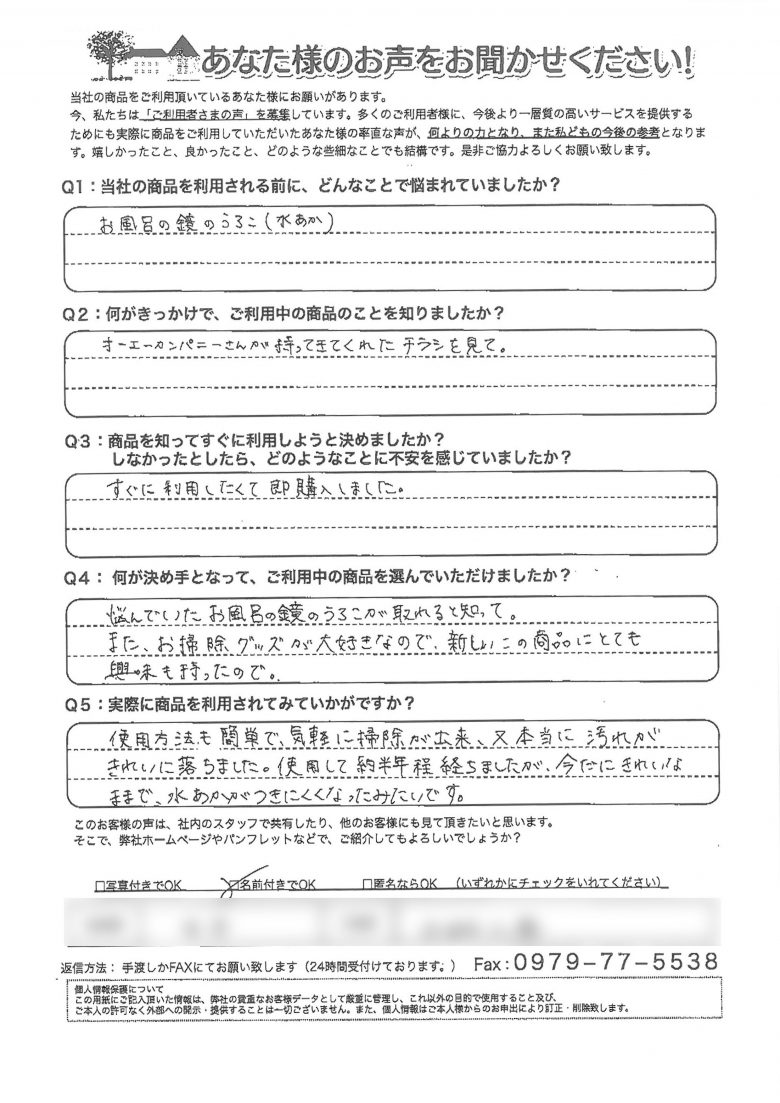 あなた様のお声をお聞かせください!
当社の商品をご利用頂いているあなた様にお願いがあります。
今、私たちは「ご利用者さまの声」を募集しています。多くのご利用者様に、今後より一層質の高いサービスを提供する
ためにも実際に商品をご利用していただいたあなた様の率直な声が、何よりの力となり、また私どもの今後の参考となりま
す。嬉しかったこと、良かったこと、どのような些細なことでも結構です。是非ご協力よろしくお願い致します。
Q1：当社の商品を利用される前に、どんなことで悩まれていましたか？
お風呂の鏡のうろこ(水あか)
Q2：何がきっかけで、ご利用中の商品のことを知りましたか？
オーエーカンパニーさんが持ってきてくれたチラシを見て。
Q3：商品を知ってすぐに利用しようと決めましたか？
しなかったとしたら、どのようなことに不安を感じていましたか？
すぐに利用したくて即購入しました。
Q4： 何が決め手となって、ご利用中の商品を選んでいただけましたか？
悩んでいたお風呂の鏡のうろこが取れると知って。
また、お掃除グッズが大好きなので、新しいこの商品にとても
興味も持ったので。
Q5：実際に商品を利用されてみていかがですか？
使用方法も簡単で、気軽に掃除が出来、又本当に汚れが
きれいに落ちました。使用して約半年程経ちましたが、今だにきれいな
ままで、水あかがつきにくくなったみたいです。
このお客様の声は、社内のスタッフで共有したり、他のお客様にも見て頂きたいと思います。
そこで、弊社ホームページやパンフレットなどで、ご紹介してもよろしいでしょうか？
□写真付きでOK ☑名前付きでOK □匿名ならOK （いずれかにチェックをいれてください）
返信方法： 手渡しかFAXにてお願い致します（24時間受付けております。） Fax：0979-77-5538
個人情報保護について
この用紙にご記入頂いた情報は、弊社の貴重なお客様データとして厳重に管理し、これ以外の目的で使用すること及び、
ご本人の許可なく外部への開示・提供することは一切ございません。また、個人情報はご本人様からのお申出により訂正・削除致します。